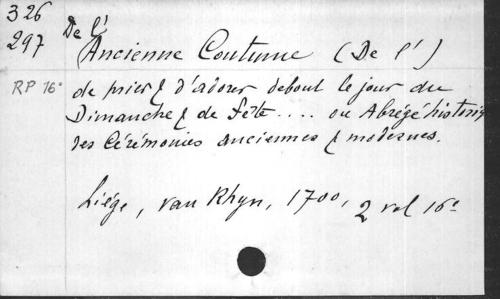 326
297
De l'
Ancienne Coutume (De l')
RP 16°
de prier & d'adorer debout le jour du
Dimanche & de fête .... ou Abrégé historiq
des Cérémonies anciennes & modernes.
Liége, van Rhyn, 1700, 2 vol 16°